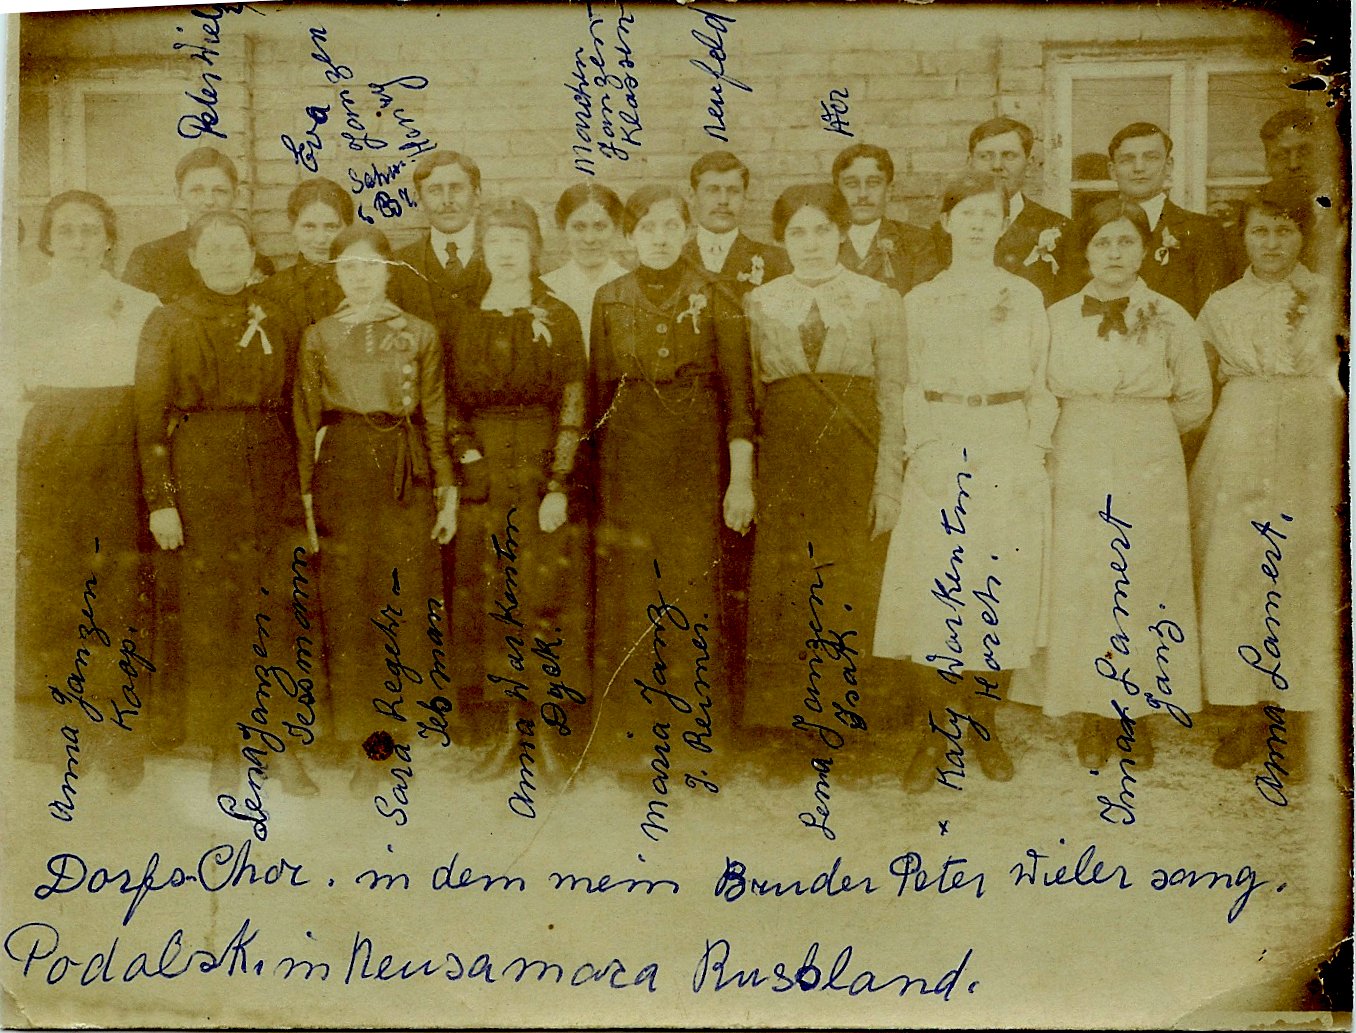 Peter Wiel
Eva
Janzen
Mariechen
Janzen
Klassen
Neufeld
Anna Janzen -
Koop.
Lena Janzen.
Tessmann
Sara Regehr -
Teßman
Anna Warkentin
Dyck.
Maria Janz -
J. Reimer.
Lena Janzen -
Isaak.
* Katy Warkentin -
Horch.
Lamert
Janz.
Anna Lamert.
Dorfs-Chor. in dem mein Bruder Peter Wieler sang.
Podolsk. in Neusamara Russland.